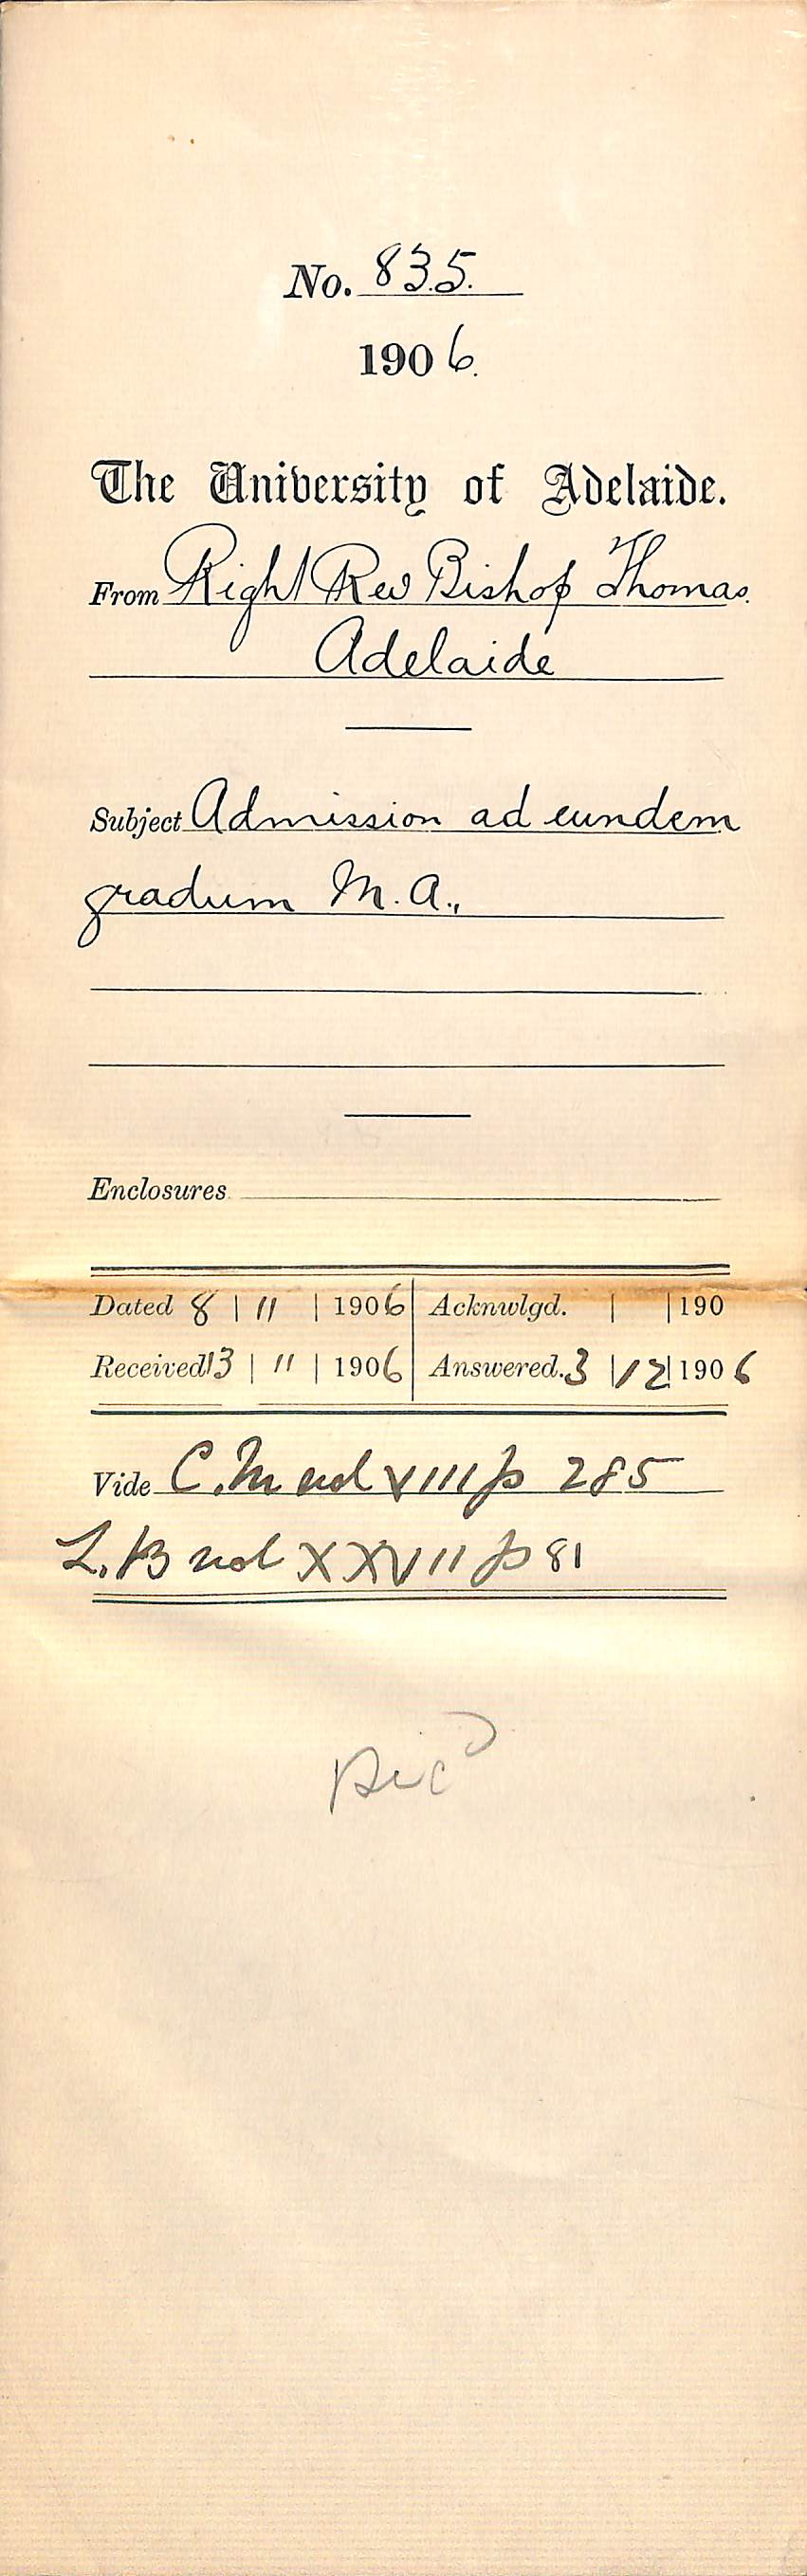 No. 835.
1906.
The University of Adelaide.
From Right Rev Bishop Thomas
Adelaide
Subject Admission ad eundem
gradum M.A.,
Enclosures
Dated 8 | 11 | 1906 Acknwlgd. | | 190
Received 13 | 11 | 1906 Answered. 3 | 12 | 1906
Vide C.M vol VIII p 285
L.B vol XXVII p 81